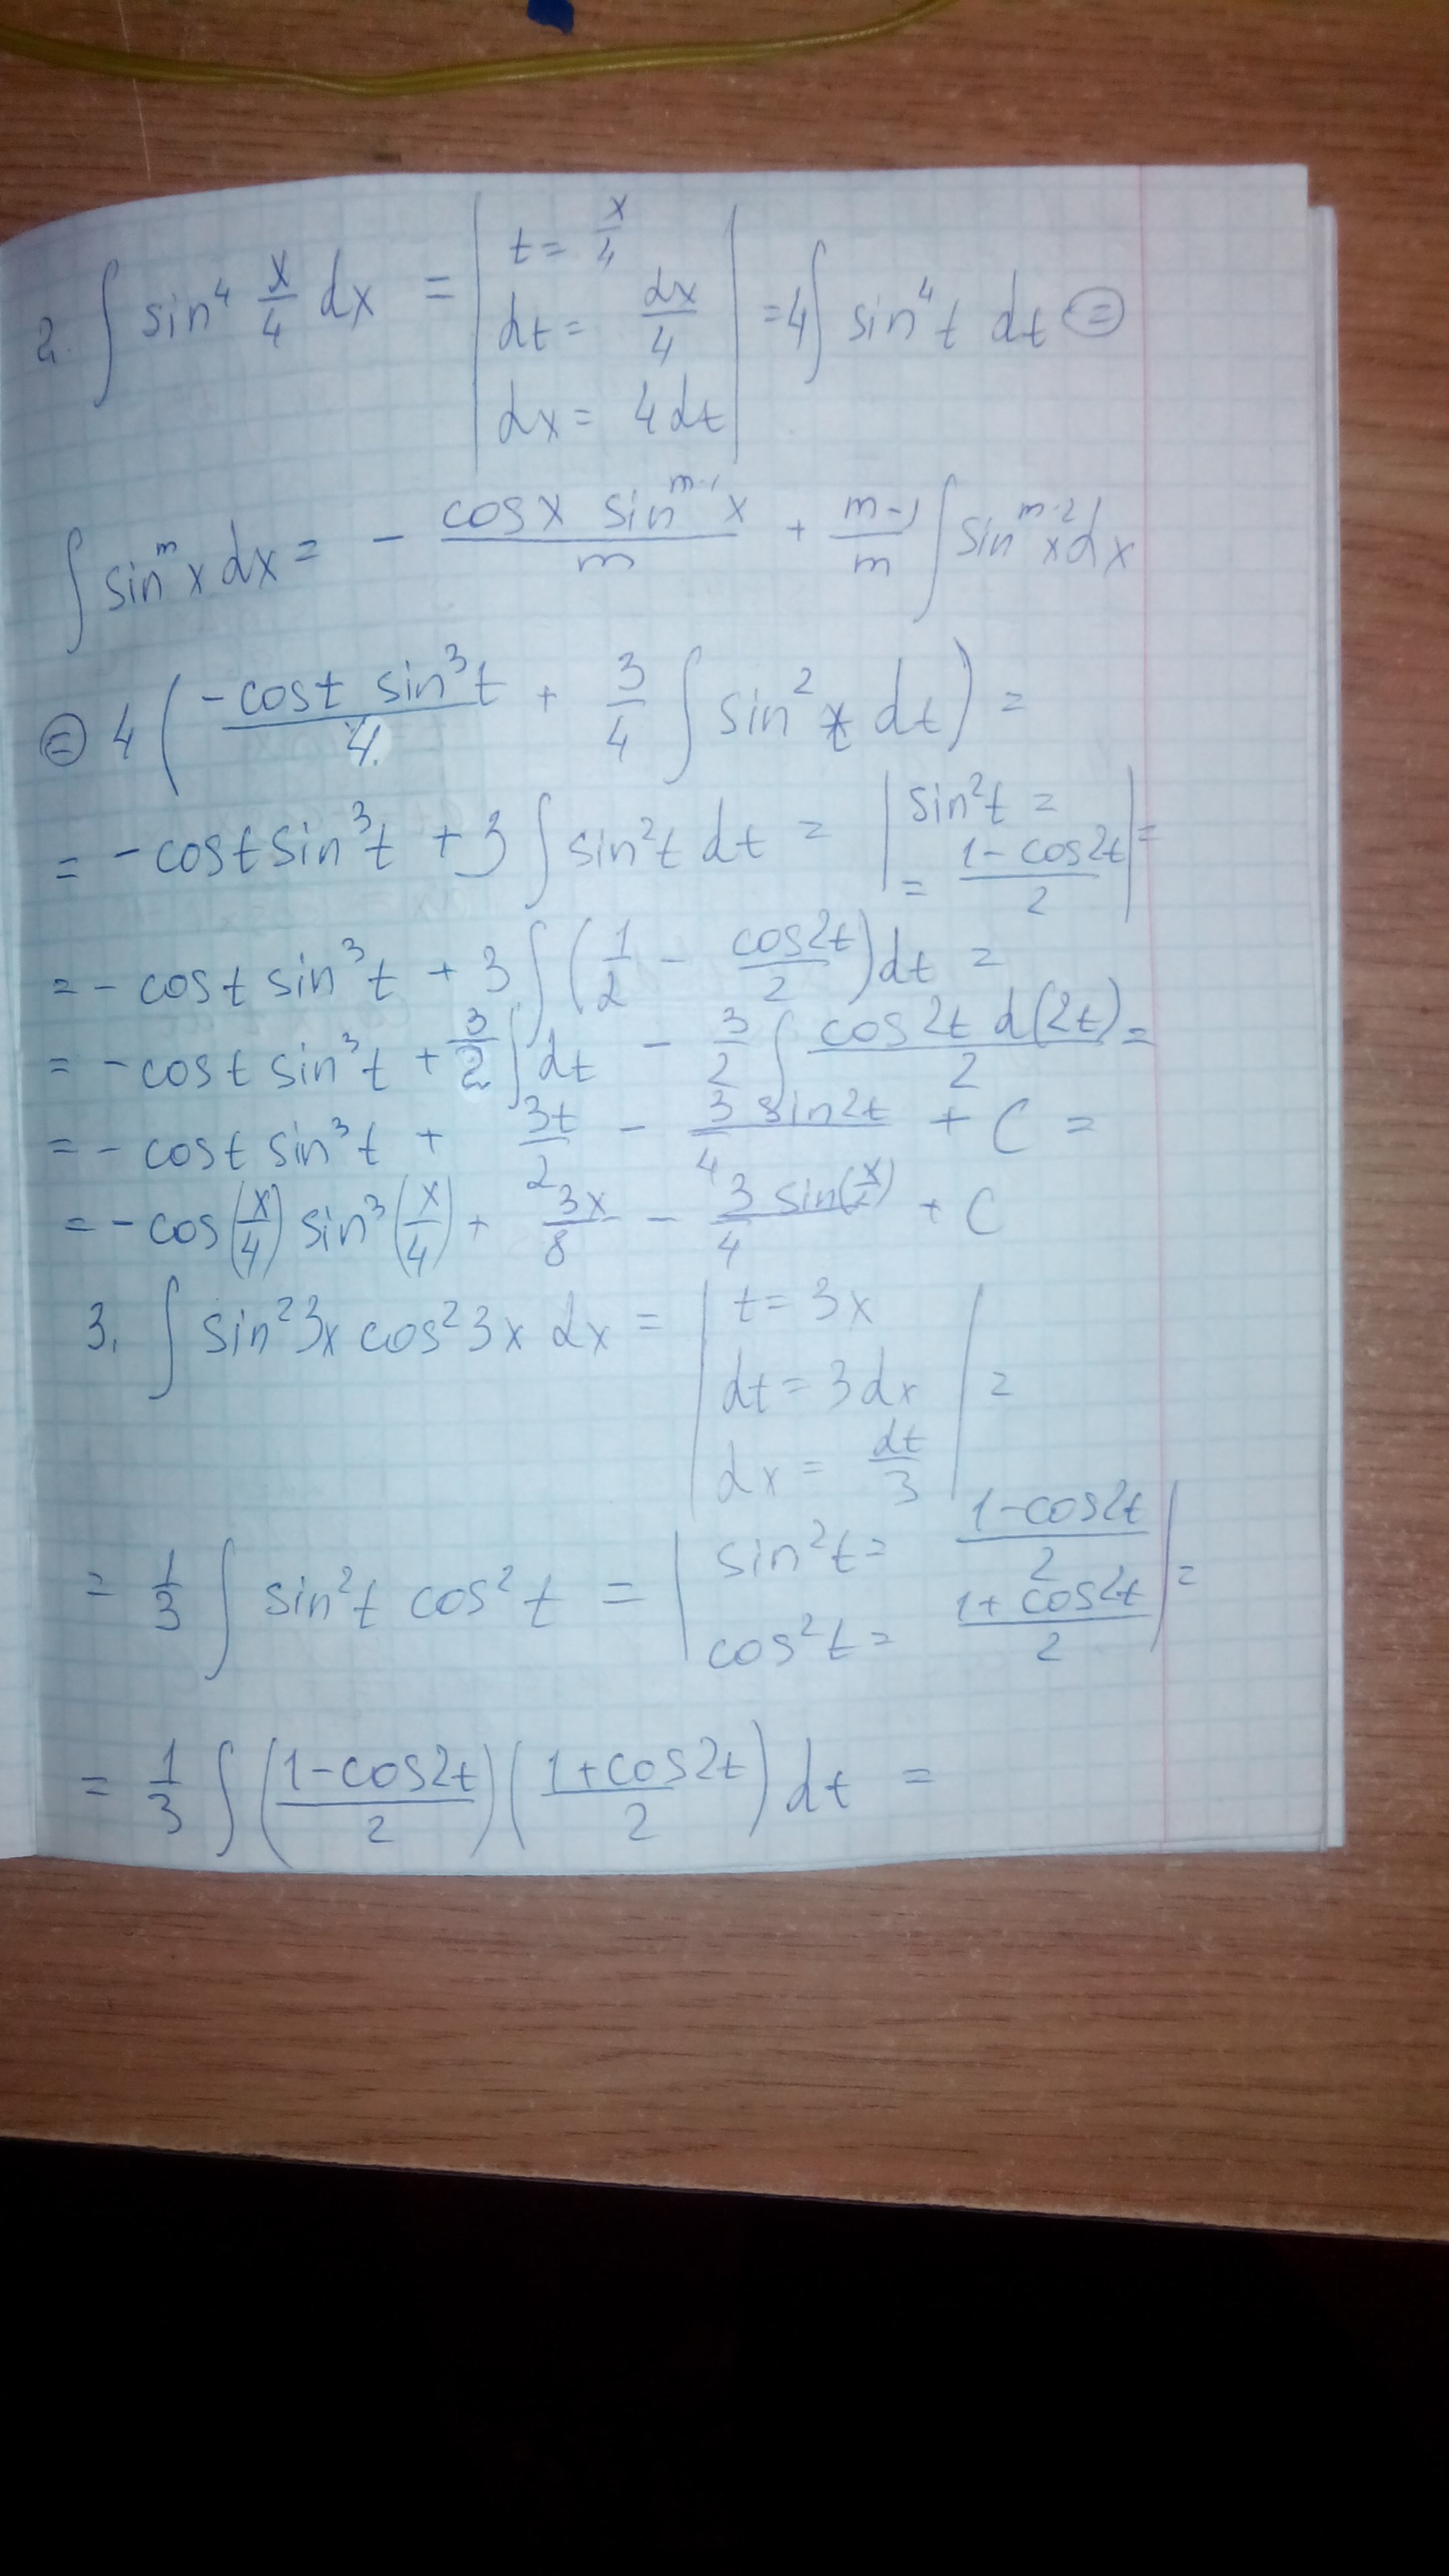 2. ∫ sin⁴ x/4 dx = | t = x/4
dt = dx/4
dx = 4dt | = 4∫ sin⁴t dt ⊜
∫ sinᵐx dx = - (cosx sinᵐ⁻¹x)/m + (m-1)/m ∫ sinᵐ⁻²x dx
⊜ 4 ( (-cost sin³t)/4 + 3/4 ∫ sin²t dt ) =
= -cost sin³t + 3 ∫ sin²t dt = | sin²t =
= (1-cos2t)/2 | =
= - cost sin³t + 3 ∫ (1/2 - cos2t/2) dt =
= -cost sin³t + 3/2 ∫ dt - 3/2 ∫ (cos2t d(2t))/2 =
= - cost sin³t + 3t/2 - (3 sin2t)/4 + C =
= - cos(x/4) sin³(x/4) + 3x/8 - (3 sin(x/2))/4 + C
3. ∫ sin²3x cos²3x dx = | t = 3x
dt = 3dx
dx = dt/3 | =
= 1/3 ∫ sin²t cos²t = | sin²t = (1-cos2t)/2
cos²t = (1+cos2t)/2 | =
= 1/3 ∫ ((1-cos2t)/2) ((1+cos2t)/2) dt =